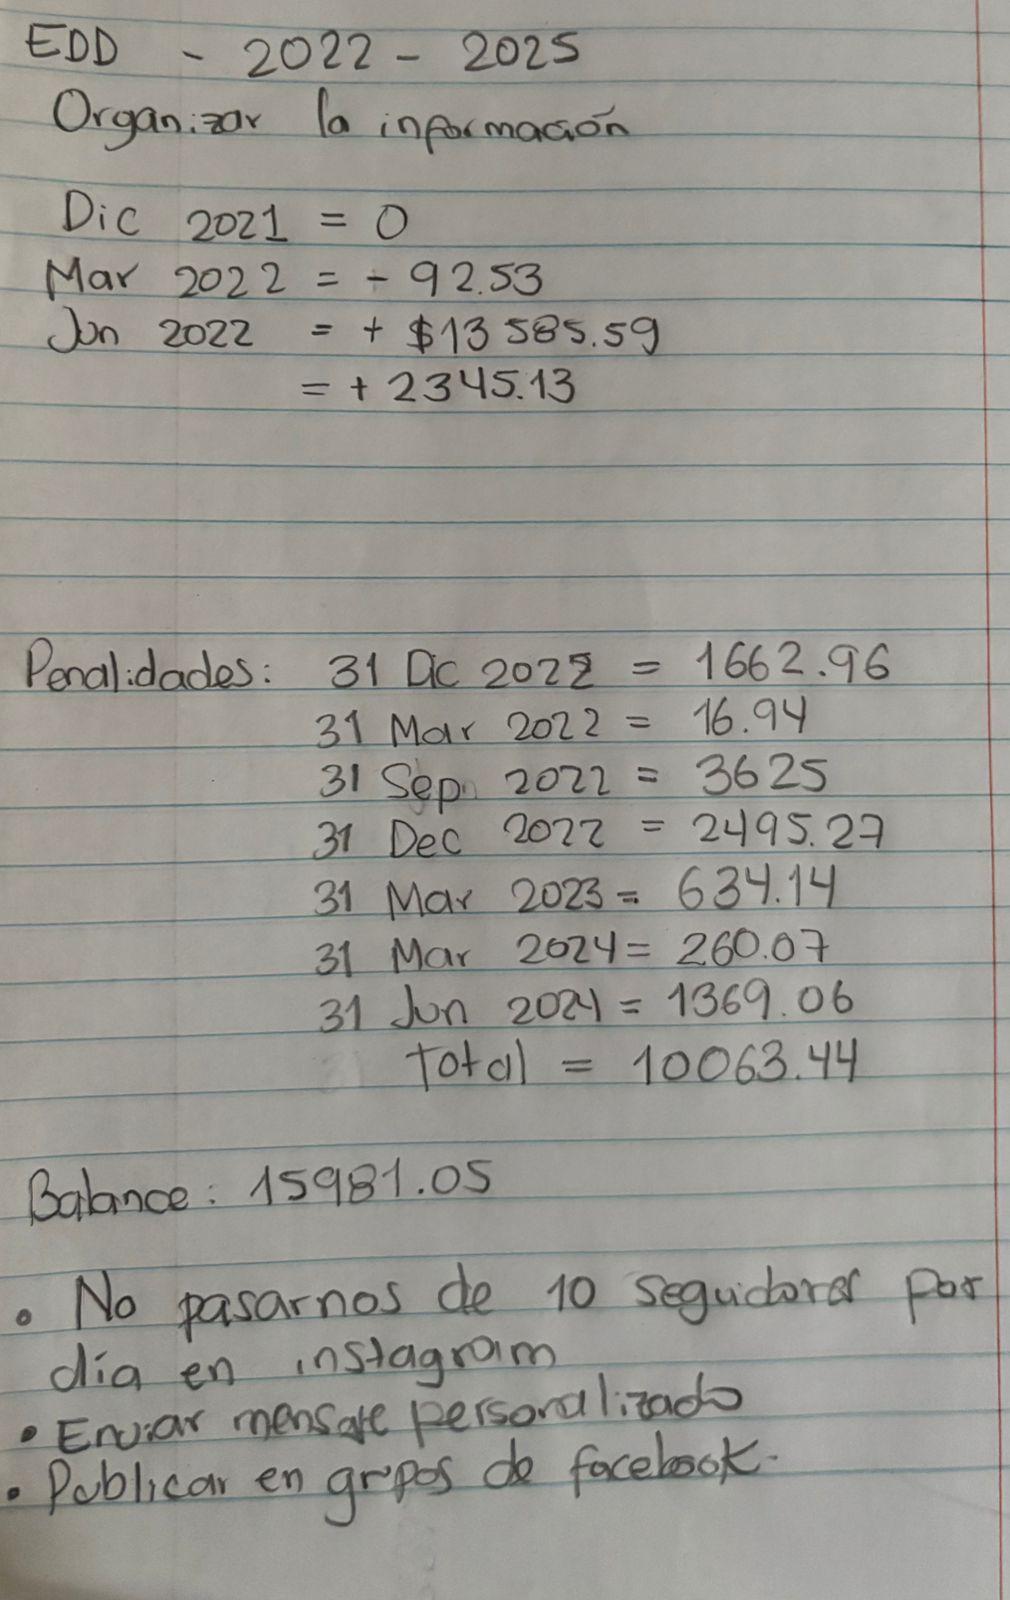 EDD - 2022 - 2025
Organizar la información
Dic 2021 = 0
Mar 2022 = - 92.53
Jun 2022 = + $13 585.59
= + 2345.13
Penalidades: 31 Dic 2022 = 1662.96
31 Mar 2022 = 16.94
31 Sep. 2022 = 3625
31 Dec 2022 = 2495.27
31 Mar 2023 = 634.14
31 Mar 2024 = 260.07
31 Jun 2024 = 1369.06
Total = 10063.44
Balance: 15981.05
• No pasarnos de 10 seguidores por
día en instagram
• Enviar mensaje personalizado
• Publicar en grupos de facebook.